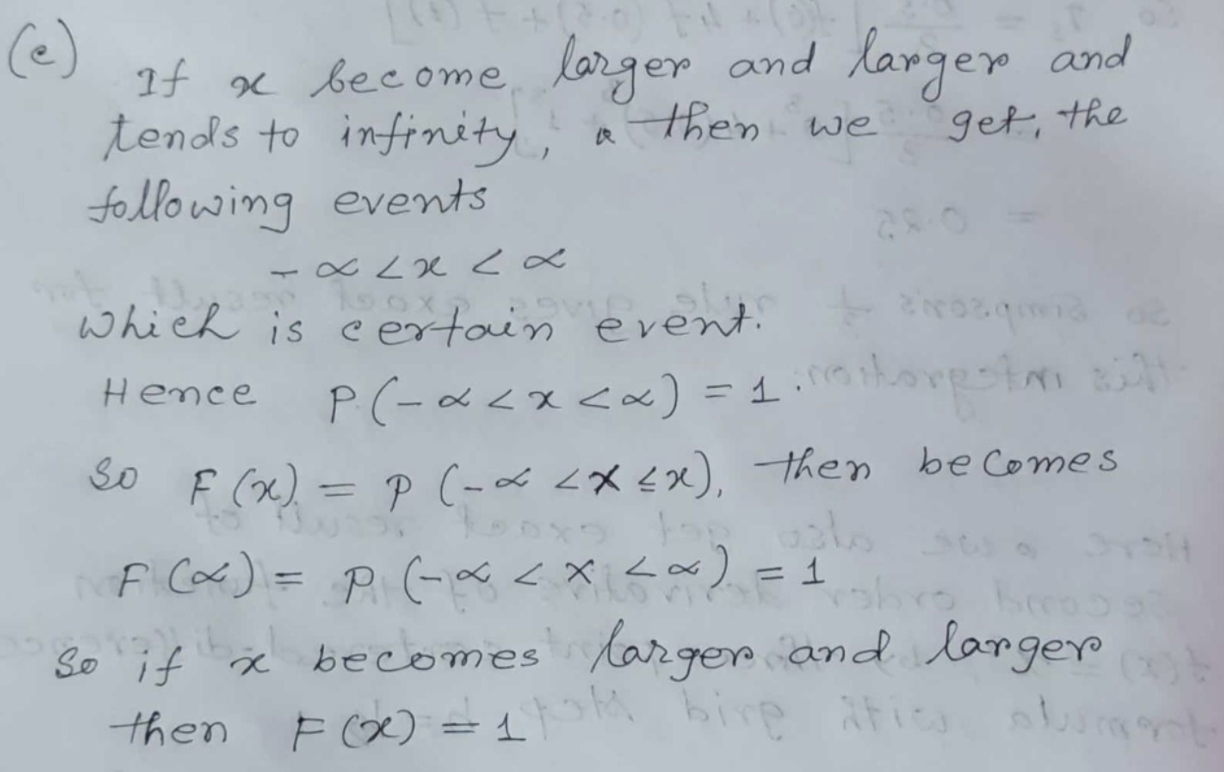 (e)
If x become larger and larger and
tends to infinity, then we get, the
following events
- ∝ < x < ∝
which is certain event.
Hence P(-∝ < x < ∝) = 1.
So F(x) = P (-∝ < X ≤ x), then becomes
F(∝) = P (-∝ < X < ∝) = 1
So if x becomes larger and larger
then F(x) = 1